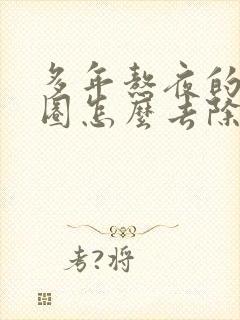 多年熬夜的
圈怎麼去除
考?将